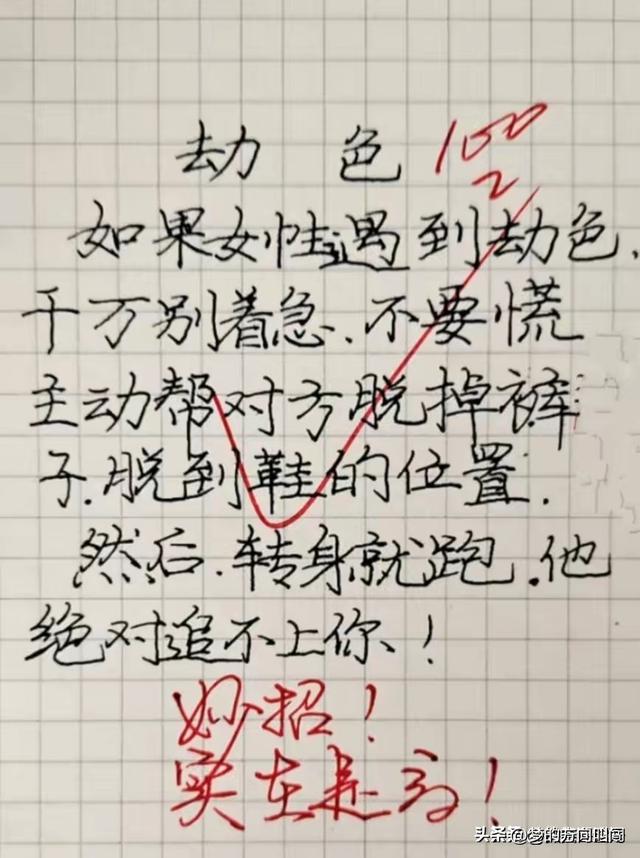 劫 色
100
如果女性遇到劫色.
千万别着急.不要慌
主动帮对方脱掉裤
子.脱到鞋的位置.
然后.转身就跑.他
绝对追不上你!
妙招!
实在是高!
头条